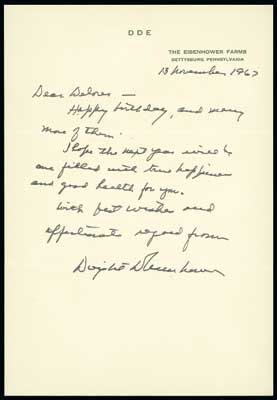 DDE
THE EISENHOWER FARMS
GETTYSBURG, PENNSYLVANIA
13 November, 1967
Dear Delores —
Happy birthday, and many
more of them.
I hope the next year will be
one filled with true happiness
and good health for you.
With best wishes and
affectionate regard from
Dwight D Eisenhower